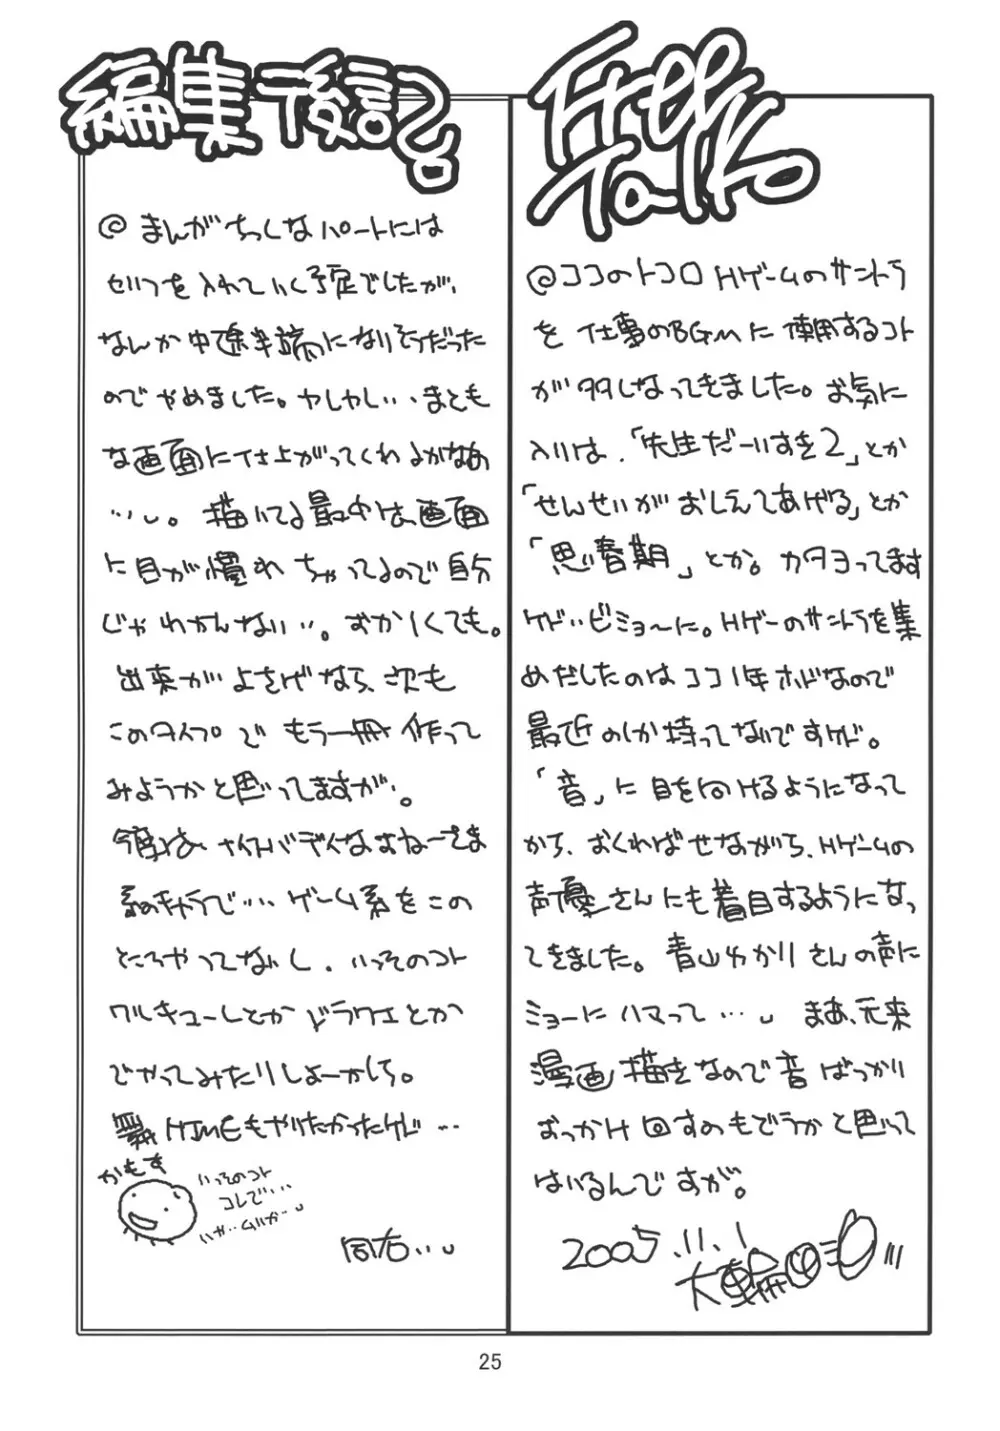 Free
Talk
@ココのトコロHゲームのサントラ
を仕事のBGMに使用するコト
が多くなってきました。お気に
入りは、「先生だーいすき2」とか
「せんせいがおしえてあげる」とか
「思春期」とか。カタヨってます
ケド‥ビミョ〜に。Hゲーのサントラを集
めだしたのはココ1年ホドなので
最近のしか持ってないですケド。
「音」に目を向けるようになって
から、おくればせながら、Hゲームの
声優さんにも着目するようになっ
てきました。青山ゆかりさんの声に
ミョーにハマって…。まあ、元来
漫画描きなので音ばっかり
おっかけ回すのもどうかと思って
はいるんですが。
2005.11.1
編集後記。
@まんがちっくなパートには
せりフを入れていく予定でしたが、
なんか中途半端になりそうだった
のでやめました。しかし‥まとも
な画面に仕上がってくれるかなあ
…。描いてる最中は、画面
に目が慣れちゃってるので自分
じゃわかんない‥。おかしくても。
出来がよさげなら、次も
このタイプでもう一冊作って
みようかと思ってますが。
今度は、ナイスバディなおねーさま
系のキャラで…ゲーム系をこの
ところやってないし、いっそのコト
ワルキューレとかドラクエとか
でやってみたりしよーかしら。
舞HIMEもやりたかったケド…
かもす
いっそのコト
コレで…
いや‥ムリか‥
同右‥
25